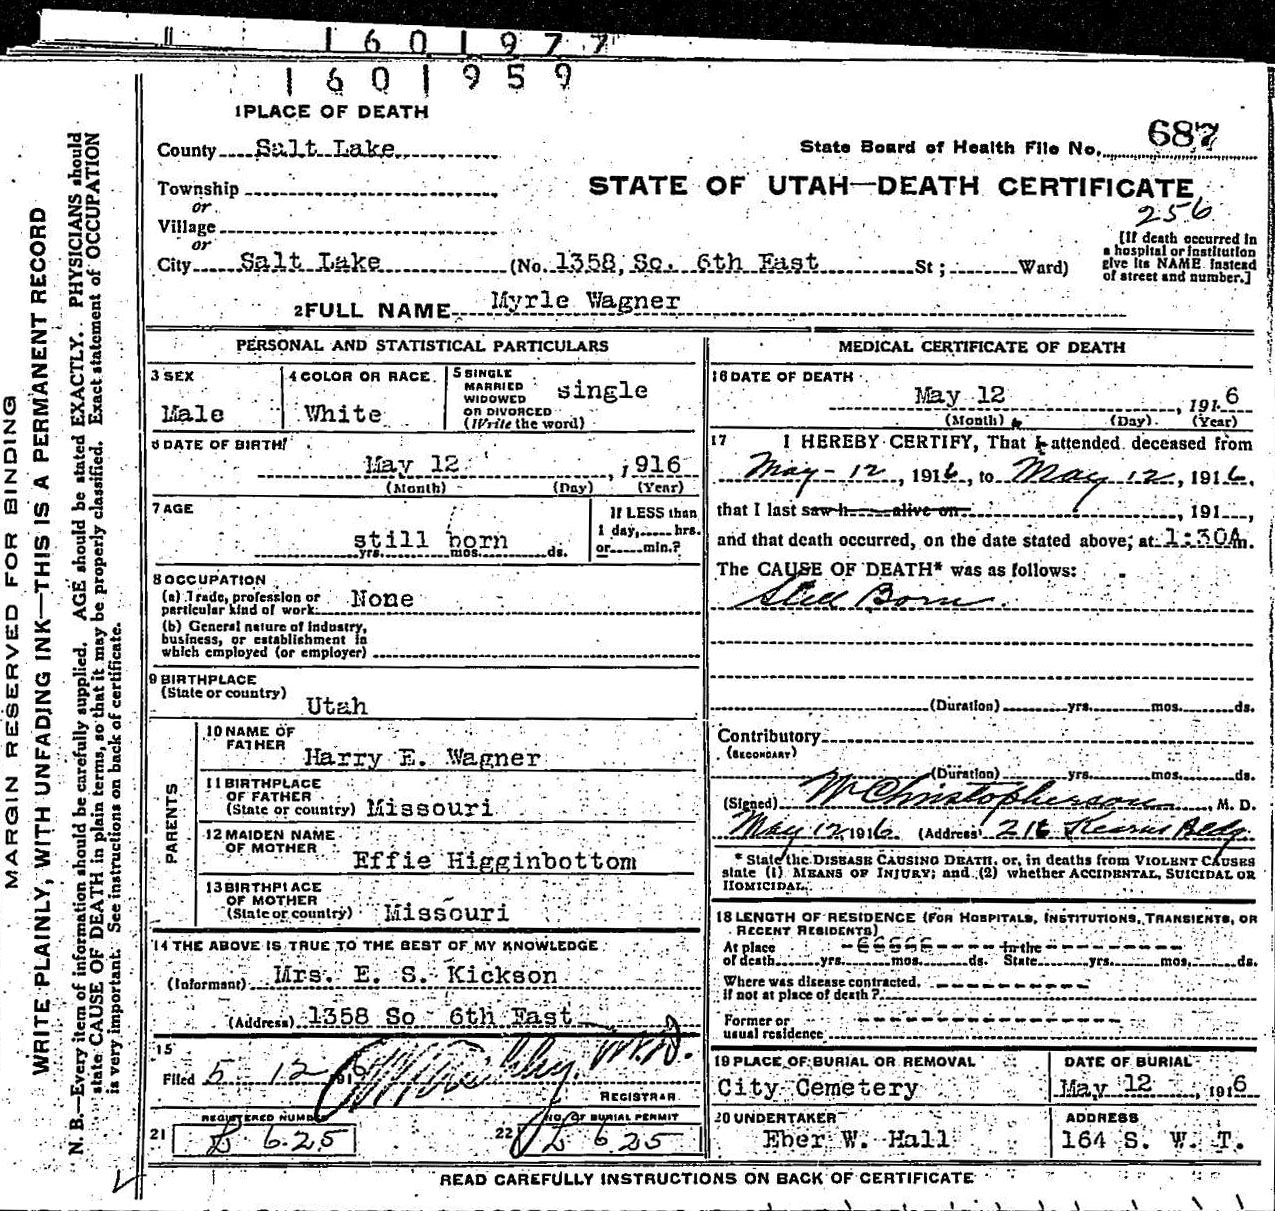 1601977
1601959
1 PLACE OF DEATH
County Salt Lake
State Board of Health File No. 687
Township
STATE OF UTAH—DEATH CERTIFICATE
or
256
Village
or
City Salt Lake (No. 1358, So. 6th East St; Ward)
[If death occurred in a hospital or institution give its NAME instead of street and number.]
2 FULL NAME Myrle Wagner
PERSONAL AND STATISTICAL PARTICULARS
3 SEX
Male
4 COLOR OR RACE
White
5 SINGLE MARRIED WIDOWED OR DIVORCED (Write the word) single
6 DATE OF BIRTH
May 12, 1916
(Month) (Day) (Year)
7 AGE
still born
yrs. mos. ds.
If LESS than
1 day, hrs.
or min.?
8 OCCUPATION
(a) Trade, profession or
particular kind of work None
(b) General nature of industry,
business, or establishment in
which employed (or employer)
9 BIRTHPLACE
(State or country)
Utah
PARENTS
10 NAME OF
FATHER
Harry E. Wagner
11 BIRTHPLACE
OF FATHER
(State or country) Missouri
12 MAIDEN NAME
OF MOTHER
Effie Higginbottom
13 BIRTHPLACE
OF MOTHER
(State or country) Missouri
14 THE ABOVE IS TRUE TO THE BEST OF MY KNOWLEDGE
(Informant) Mrs. E. S. Kickson
(Address) 1358 So 6th East
15
Filed 5 12 1916 M.D.
REGISTRAR
REGISTERED NUMBER
NO. OF BURIAL PERMIT
21 625
22 625
MEDICAL CERTIFICATE OF DEATH
16 DATE OF DEATH
May 12, 1916
(Month) (Day) (Year)
17 I HEREBY CERTIFY, That I attended deceased from
May - 12, 1916, to May 12, 1916,
that I last saw h alive on, 191,
and that death occurred, on the date stated above, at 1:30A m.
The CAUSE OF DEATH* was as follows:
Still Born
(Duration) yrs. mos. ds.
Contributory
(SECONDARY)
(Duration) yrs. mos. ds.
(Signed) W Christopherson, M. D.
May 12 1916 (Address) 216 Kearns Bldg
* State the DISEASE CAUSING DEATH, or, in deaths from VIOLENT CAUSES
state (1) MEANS OF INJURY; and (2) whether ACCIDENTAL, SUICIDAL OR
HOMICIDAL.
18 LENGTH OF RESIDENCE (FOR HOSPITALS, INSTITUTIONS, TRANSIENTS, OR
RECENT RESIDENTS)
At place In the
of death yrs. mos. ds. State yrs. mos. ds.
Where was disease contracted,
if not at place of death?
Former or
usual residence
19 PLACE OF BURIAL OR REMOVAL
City Cemetery
DATE OF BURIAL
May 12, 1916
20 UNDERTAKER
Eber W. Hall
ADDRESS
164 S. W. T.
READ CAREFULLY INSTRUCTIONS ON BACK OF CERTIFICATE
MARGIN RESERVED FOR BINDING
WRITE PLAINLY, WITH UNFADING INK—THIS IS A PERMANENT RECORD
N. B.—Every item of information should be carefully supplied. AGE should be stated EXACTLY. PHYSICIANS should
state CAUSE OF DEATH in plain terms, so that it may be properly classified. Exact statement of OCCUPATION
is very important. See instructions on back of certificate.